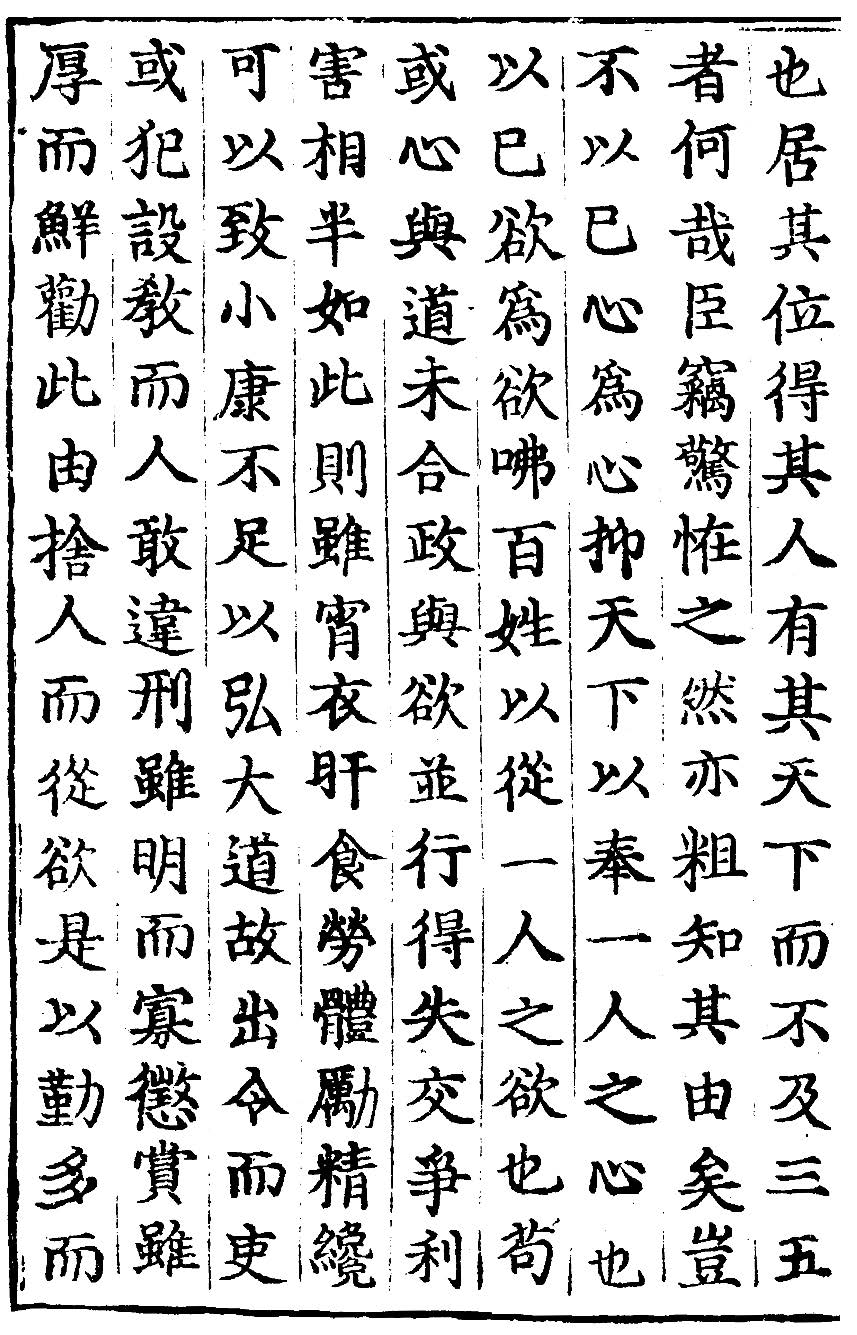 也居其位得其人有其天下而不及三五
者何哉臣竊驚恠之然亦粗知其由矣豈
不以已心爲心抑天下以奉一人之心也
以已欲爲欲咈百姓以從一人之欲也苟
或心與道未合政與欲並行得失交爭利
害相半如此則雖宵衣旰食勞體勵精纔
可以致小康不足以弘大道故出令而吏
或犯設教而人敢違刑雖明而寡懲賞雖
厚而鮮勸此由捨人而從欲是以勤多而